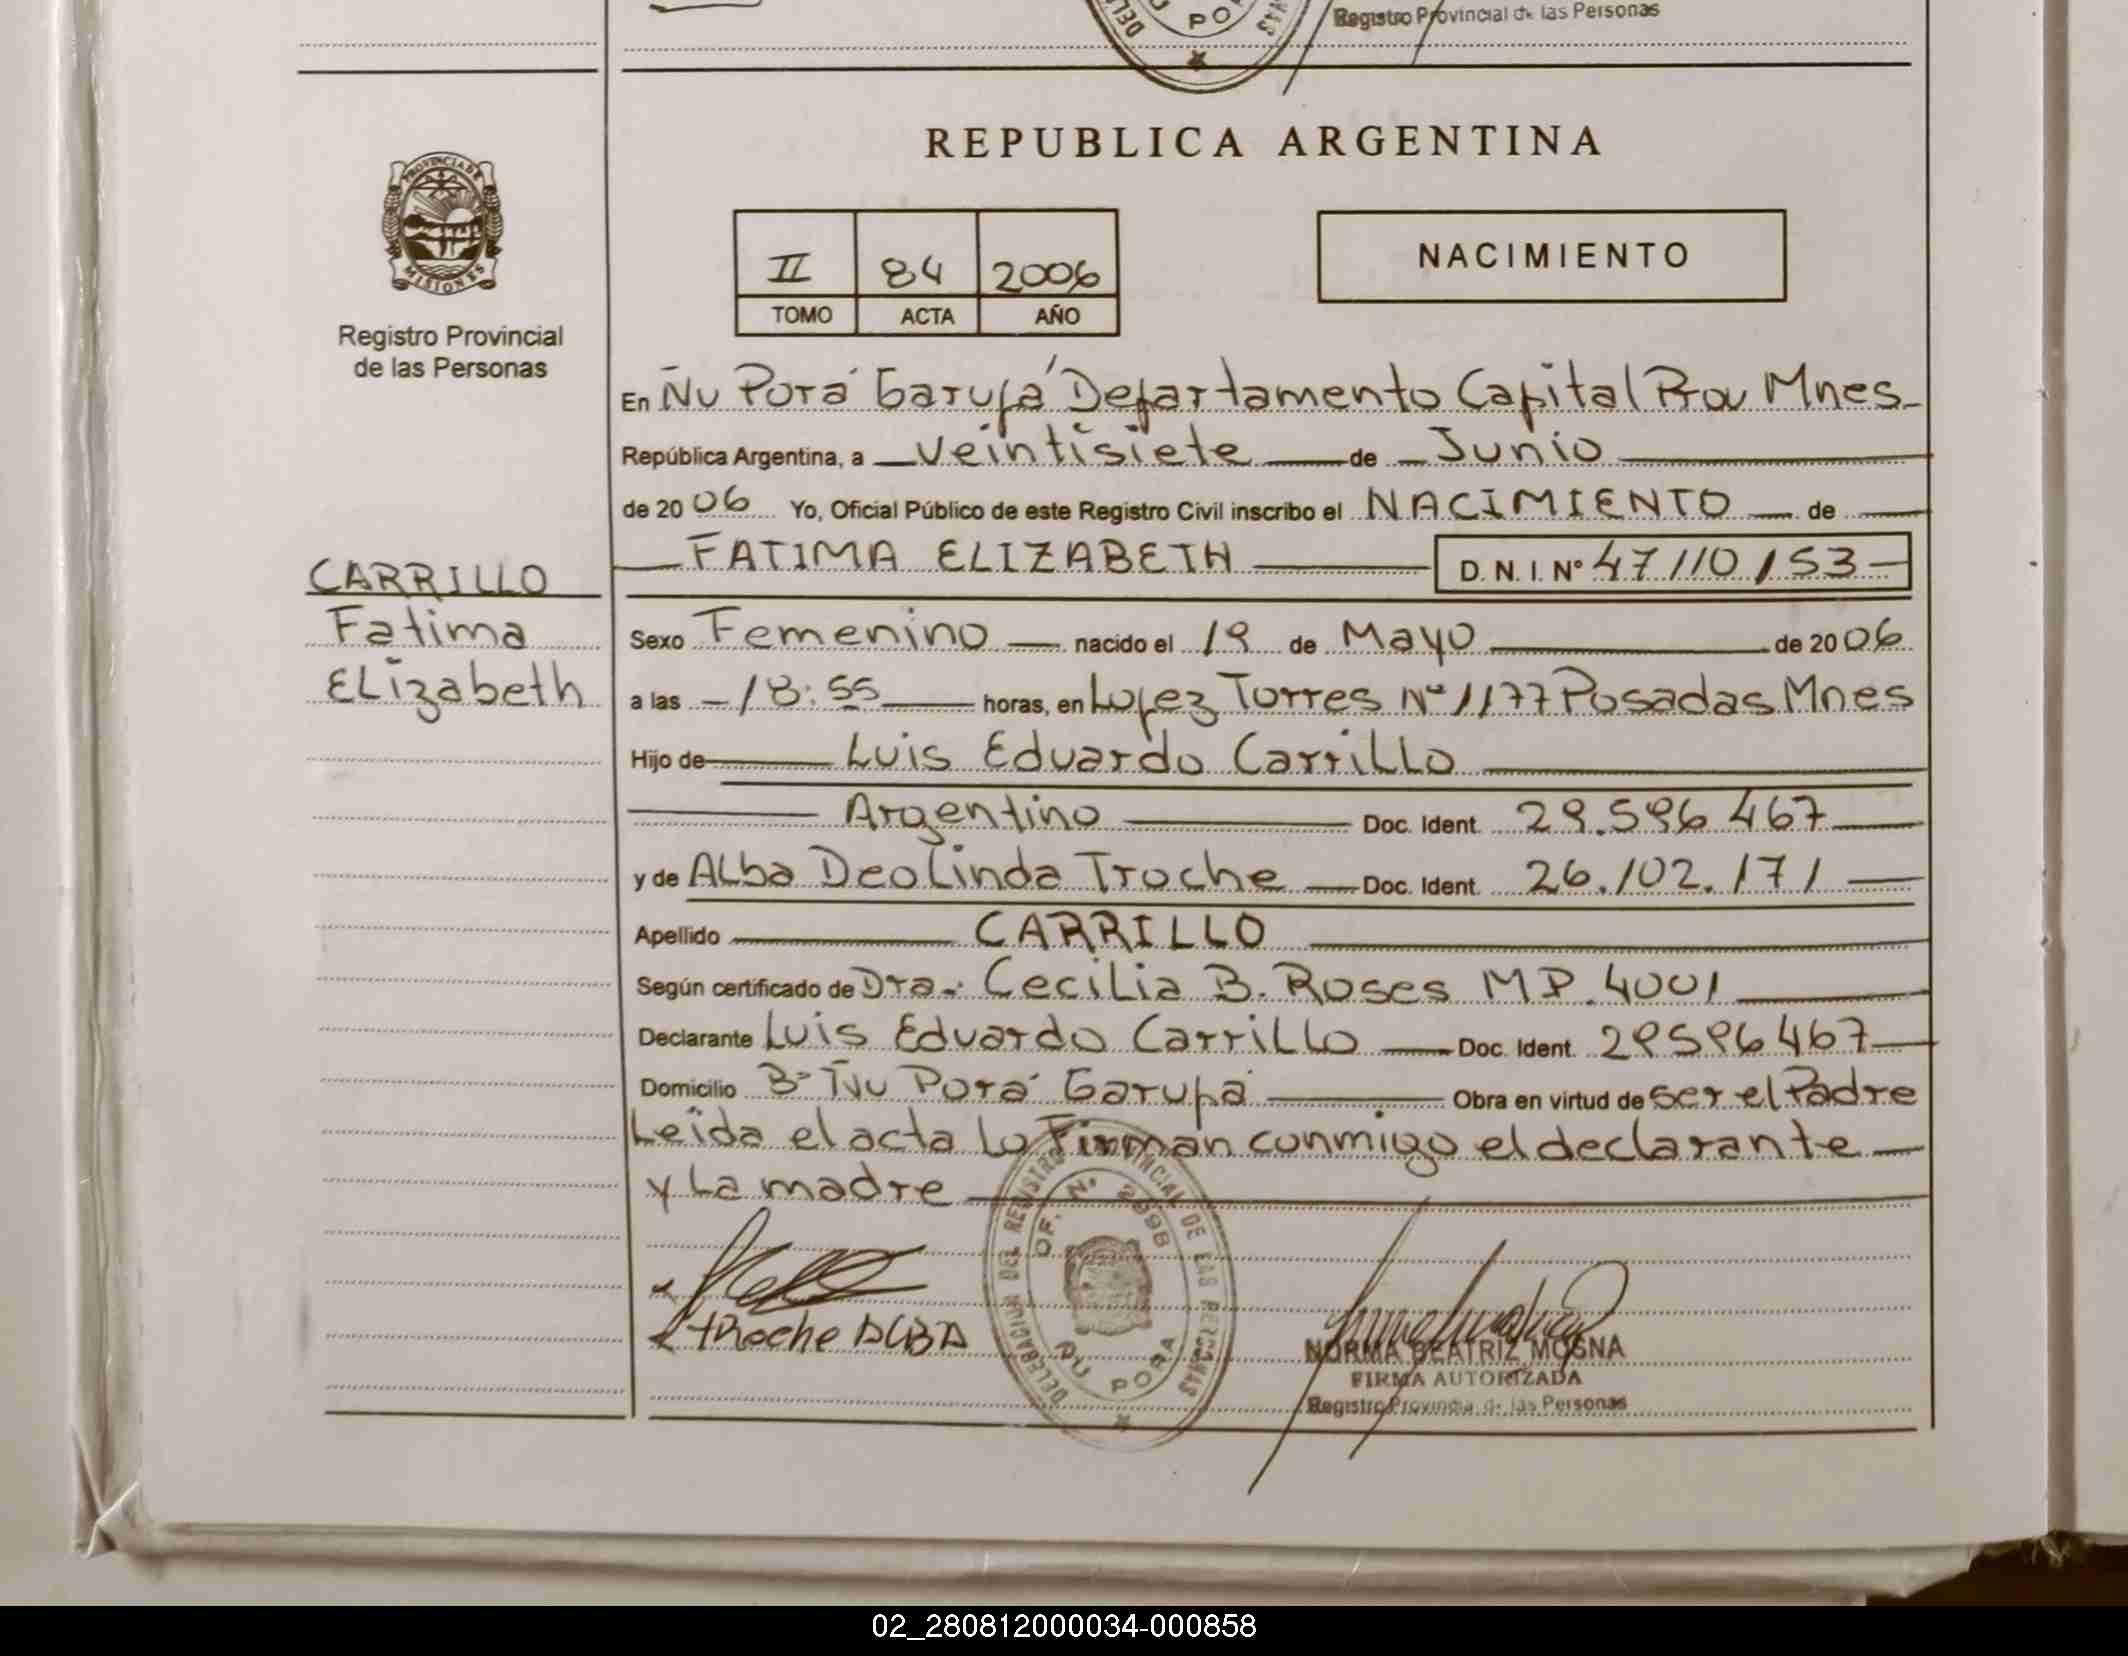 Registro Provincial de las Personas
REPUBLICA ARGENTINA
PROVINCIA DE
MISIONES
Registro Provincial
de las Personas
II 84 2006
TOMO ACTA AÑO
NACIMIENTO
En Ñu Porá Garupá Departamento Capital Prov Mnes
República Argentina, a veintisiete de Junio
de 2006 Yo, Oficial Público de este Registro Civil inscribo el NACIMIENTO de
FATIMA ELIZABETH D. N. I. Nº 47110153
CARRILLO
Fatima
Elizabeth
Sexo Femenino nacido el 19 de Mayo de 2006
a las 18:55 horas, en Lopez Torres Nº 1177 Posadas Mnes
Hijo de Luis Eduardo Carrillo
Argentino Doc. Ident. 29.596 467
y de Alba Deolinda Troche Doc. Ident. 26.102.171
Apellido CARRILLO
Según certificado de Dra. Cecilia B. Roses MP. 4001
Declarante Luis Eduardo Carrillo Doc. Ident. 29596467
Domicilio Bº Ñu Porá Garupá Obra en virtud de ser el Padre
Leida el acta lo Firman conmigo el declarante
y la madre
troche ALBA
DELEGACION DEL REGISTRO PROVINCIAL DE LAS PERSONAS
OF. Nº 2998
ÑU PORA
NORMA BEATRIZ MOSNA
FIRMA AUTORIZADA
Registro Provincial de las Personas
02_280812000034-000858